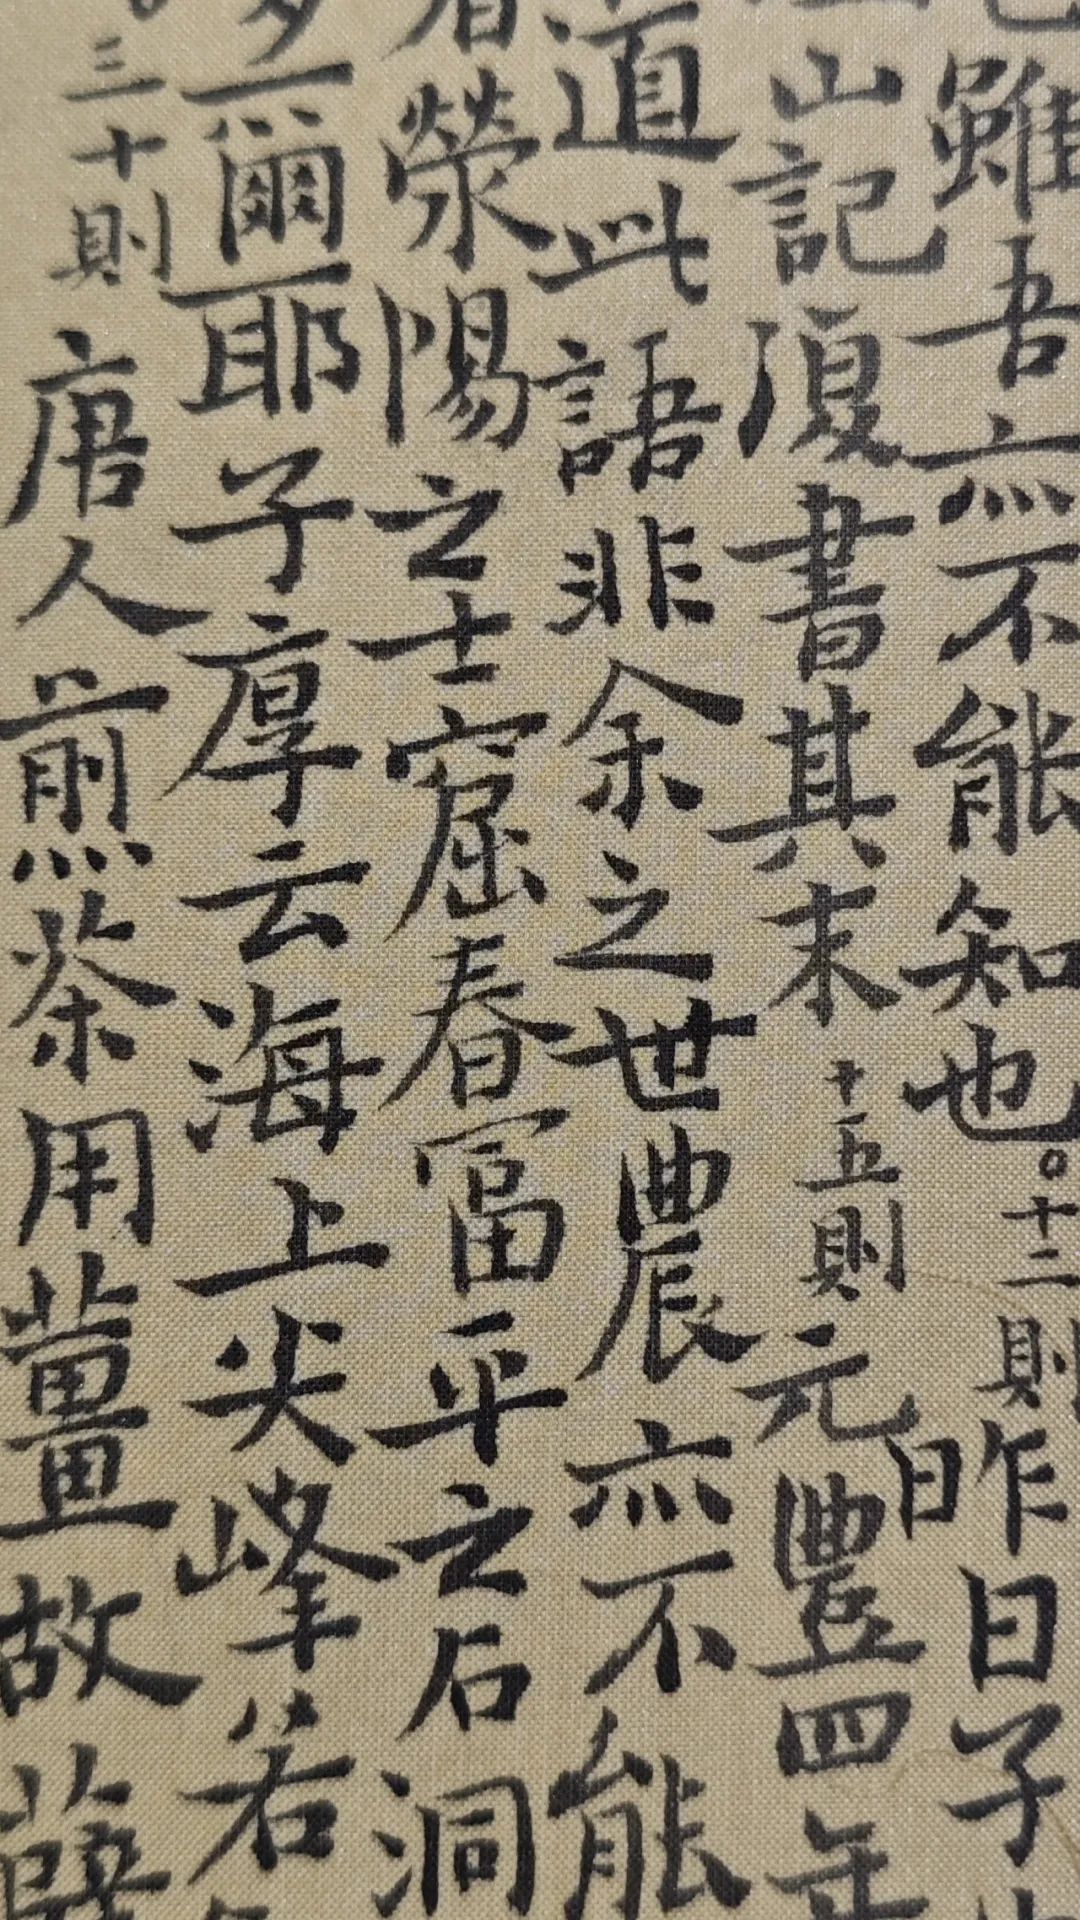 雖吾亦不能知也。十二則昨日子
山記復書其末十五則元豐四年
日
道此語非余之世農亦不能
者滎陽之士窟春富平之石洞
多爾耶子厚云海上尖峰若
三十則唐人煎茶用薑故薛